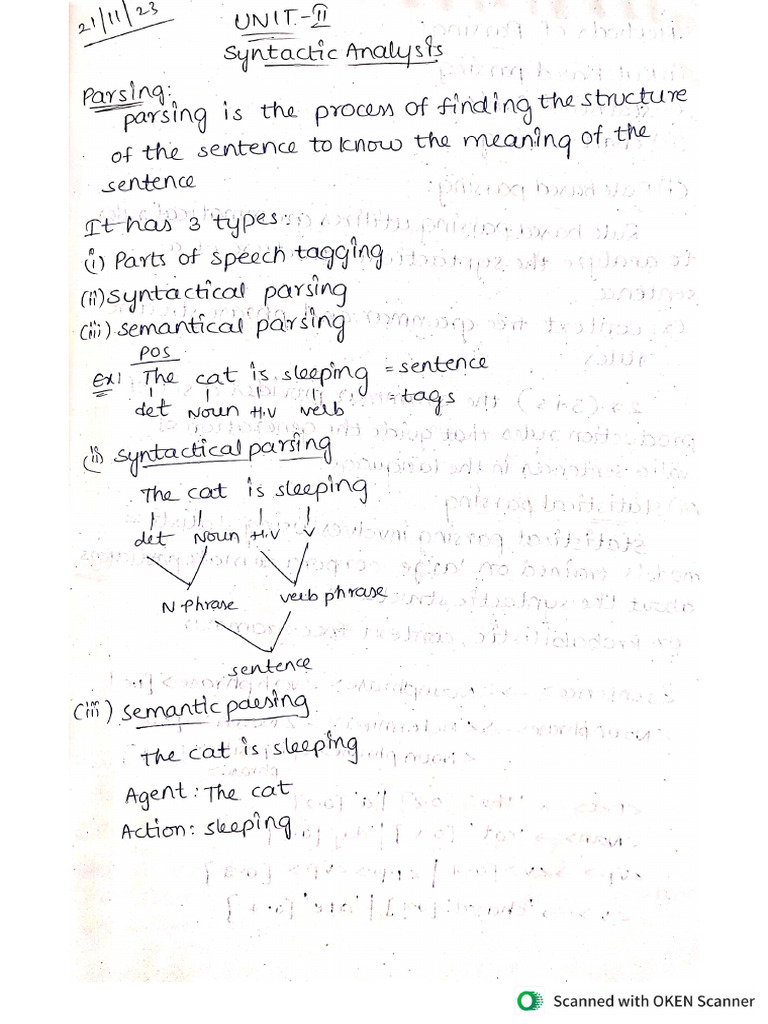 21/11/23
UNIT-II
Syntactic Analysis
Parsing:
parsing is the process of finding the structure
of the sentence to know the meaning of the
sentence
It has 3 types:
(i) Parts of speech tagging
(ii) syntactical parsing
(iii) semantical parsing
POS
Ex: The cat is sleeping = sentence
det Noun H.V verb = tags
(ii) syntactical parsing
The cat is sleeping
det Noun H.V V
N-phrase verb phrase
sentence
(iii) semantic paesing
The cat is sleeping
Agent: The cat
Action: sleeping
Scanned with OKEN Scanner